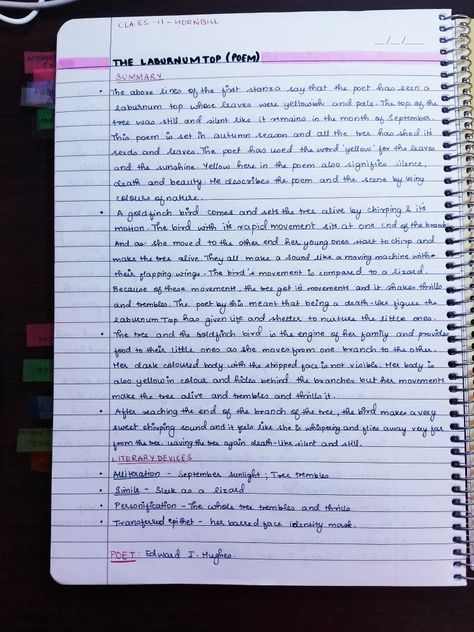 CLASS-11-HORNBILL
__/__/__
THE LABURNUM TOP (POEM)
SUMMARY
• The above lines of the first stanza say that the poet has seen a
laburnum top whose leaves were yellowish and pale. The top of the
tree was still and silent like it remains in the month of September.
This poem is set in autumn season and all the tree has shed its
seeds and leaves. The poet has used the word 'yellow' for the leaves
and the sunshine. Yellow here in the poem also signifies silence,
death and beauty. He describes the poem and the scene by using
colours of nature.
• A goldfinch bird comes and sets the tree alive by chirping & its
motion. The bird with its rapid movement sits at one end of the branch
And as she moved to the other end her young ones start to chirp and
make the tree alive. They all make a sound like a moving machine with
their flapping wings. The bird's movement is compared to a lizard.
Because of these movements, the tree got its movements and it shakes thrills
and trembles. The poet by this meant that being a death-like figure the
Laburnum Top has given life and shelter to nurture the little ones.
• The tree and the Goldfinch bird is the engine of her family and provides
food to their little ones as she moves from one branch to the other.
Her dark coloured body with the stripped face is not visible. Her body is
also yellow in colour and hides behind the branches but her movements
make the tree alive and trembles and thrills it.
• After reaching the end of the branch of the tree, the bird makes a very
sweet chirping sound and it feels like she is whispering and flies away very far
from the tree. leaving the tree again death-like silent and still.
LITERARY DEVICES
• Alliteration - September sunlight ; Tree trembles
• Simile - Sleek as a lizard
• Personification - The whole tree trembles and thrills
• Transferred epithet - her barred face identity mask.
POET : Edward J. Hughes.